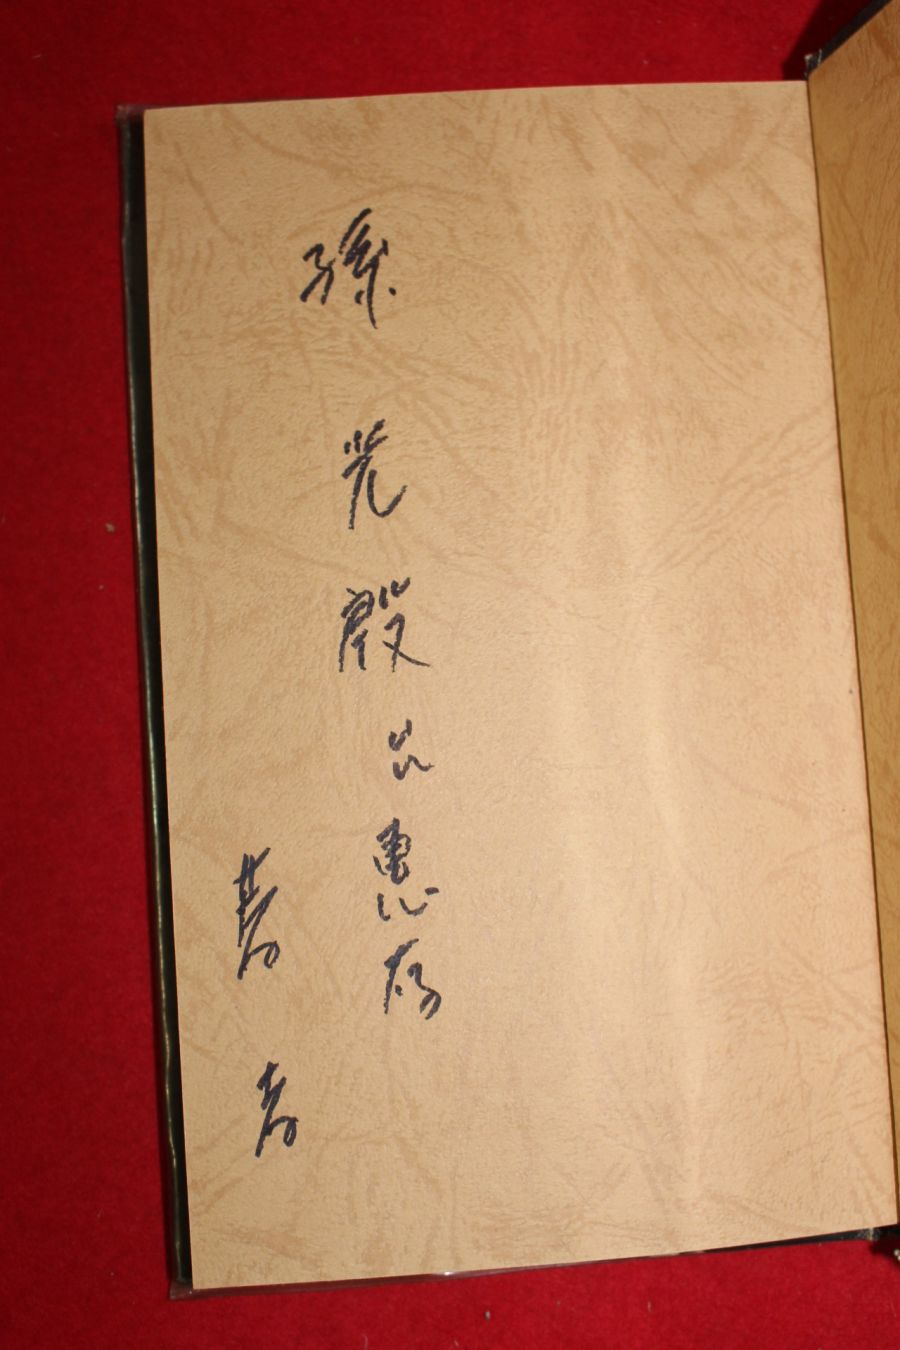 孫光殷兄惠存
著者